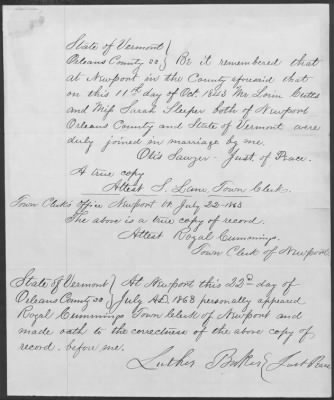 State of Vermont }
Orleans County ss. } Be it remembered that
at Newport in the County aforesaid that
on this 11th day of Oct. 1843 Mr Lorin Cutts
and Miss Sarah Sleeper both of Newport
Orleans County and State of Vermont were
duly joined in marriage by me.
Otis Sawyer - Just. of Peace.
A true copy
Attest S. Lane, Town Clerk.
Town Clerk's Office Newport Vt. July 22 - 1863
The above is a true copy of record.
Attest Royal Cummings,
Town Clerk of Newport
State of Vermont } At Newport this 22nd day of
Orleans County ss } July A.D. 1863 personally appeared
Royal Cummings Town Clerk of Newport and
made oath to the correctness of the above copy of
record - before me.
Luther Baker { Just Peace